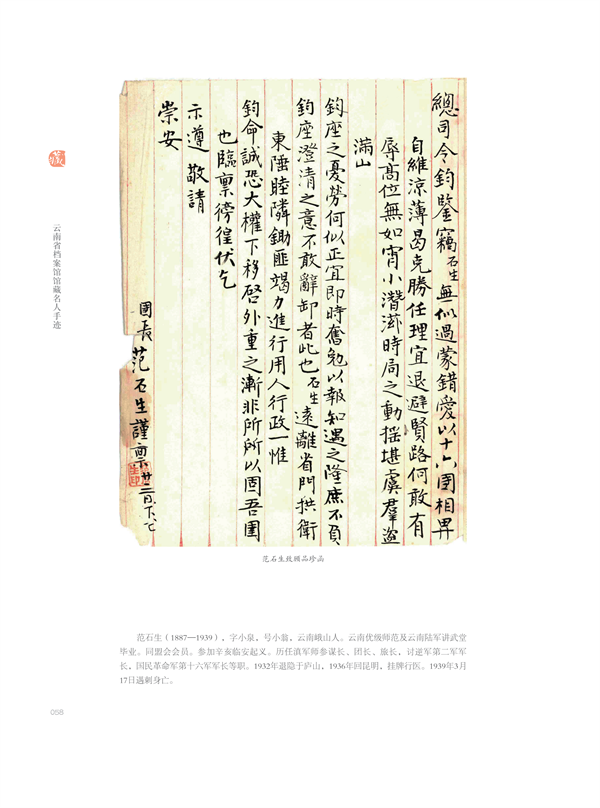 總司令鈞鑒竊石生無似過蒙錯愛以十六團相畀
自維涼薄曷克勝任理宜退避賢路何敢有
辱高位無如宵小潛滋時局之動搖堪虞羣盜
滿山
鈞座之憂勞何似正宜即時奮勉以報知遇之隆庶不負
鈞座澄清之意不敢辭卸者此也石生遠離省門拱衛
東陲睦隣鋤匪竭力進行用人行政一惟
鈞命誠恐大權下移啓外重之漸非所所以固吾圉
也臨稟徬徨伏乞
示遵敬請
崇安
團長范石生謹稟廿二日下七
藏
云南省档案馆馆藏名人手迹
范石生致顾品珍函
范石生（1887—1939），字小泉，号小翁，云南峨山人。云南优级师范及云南陆军讲武堂
毕业。同盟会会员。参加辛亥临安起义。历任滇军师参谋长、团长、旅长，讨逆军第二军军
长，国民革命军第十六军军长等职。1932年退隐于庐山，1936年回昆明，挂牌行医。1939年3月
17日遇刺身亡。
058